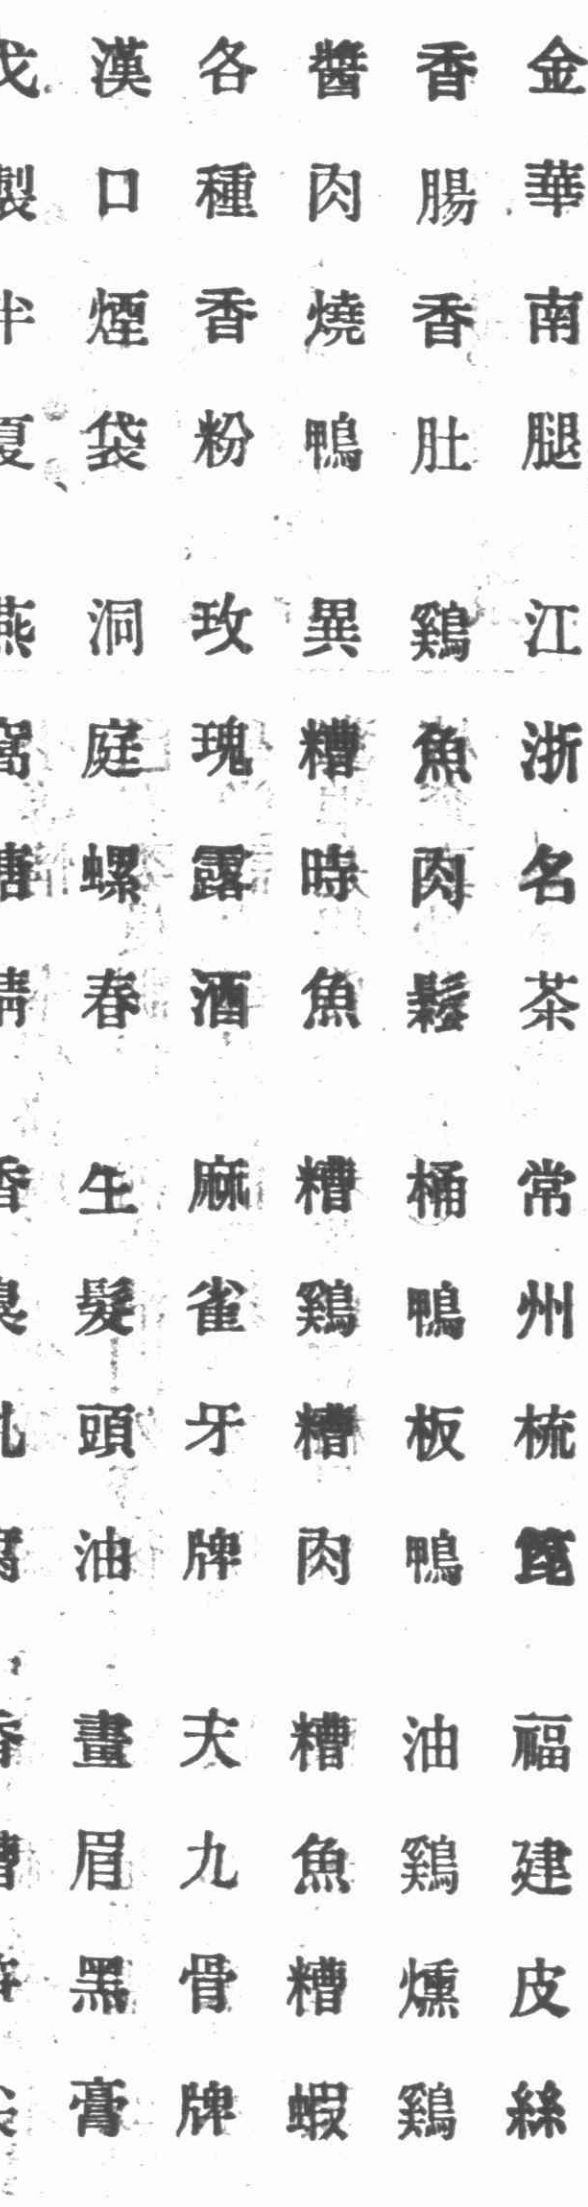 金華南腿　江浙名茶　常州梳篦　福建皮絲
香腸香肚　鷄魚肉鬆　桶鴨板鴨　油鷄燻鷄
醬肉燒鴨　異糟時魚　糟鷄糟肉　糟魚糟蝦
各種香粉　玫瑰露酒　麻雀牙牌　天九骨牌
漢口煙袋　洞庭螺春　生髮頭油　畫眉黑膏